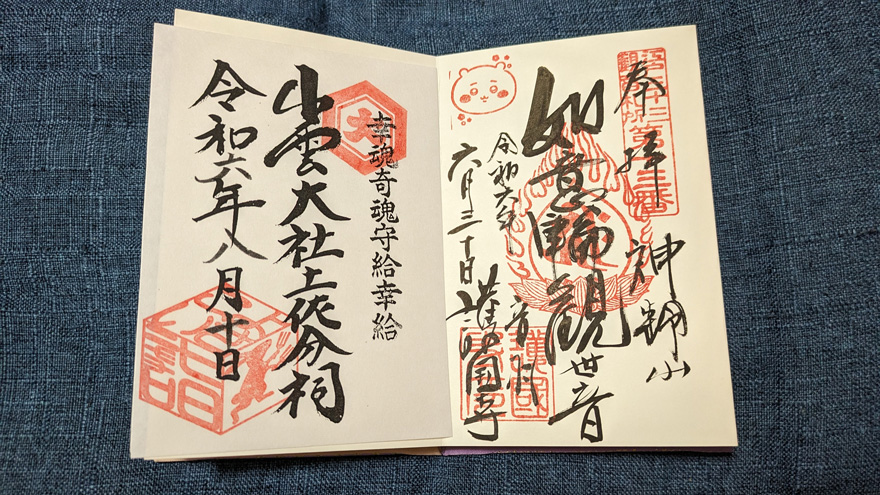 奉拝
神齢山
如意輪観世音
令和六年
六月三十日
音羽
護国寺
幸魂奇魂守給幸給
出雲大社土佐分祠
令和六年八月十日
大